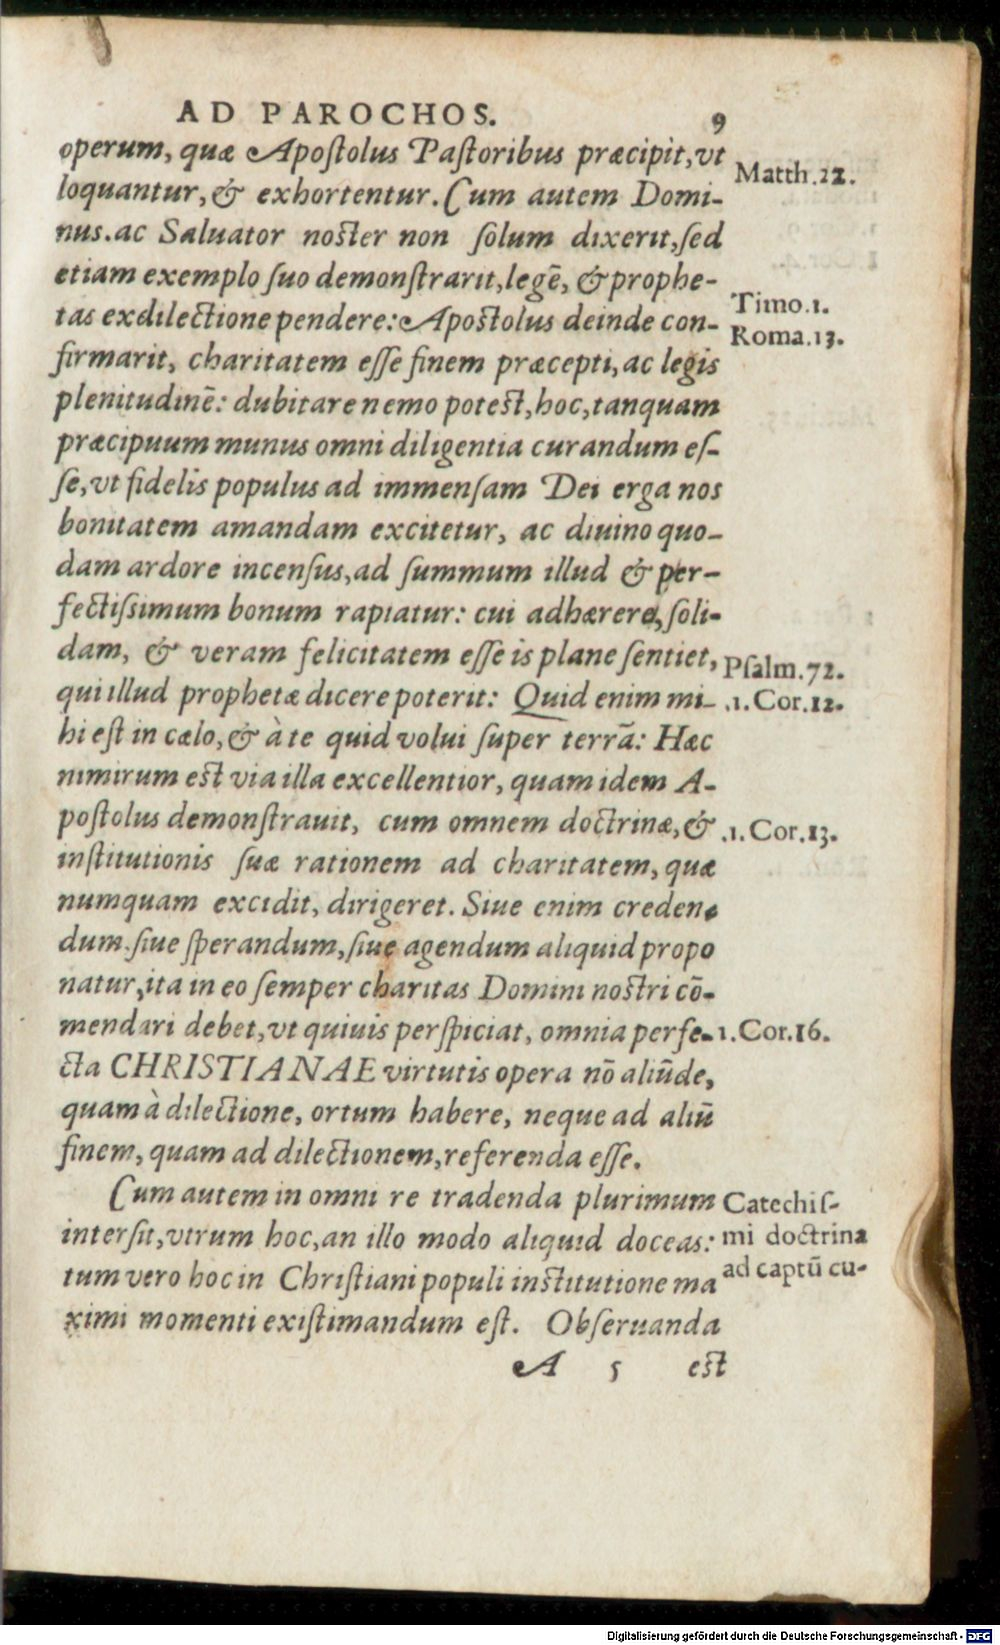 AD PAROCHOS. 9
operum, quæ Apoſtolus Paſtoribus præcipit, vt
loquantur, & exhortentur. Cum autem Domi-
nus. ac Saluator noſter non ſolum dixerit, ſed
etiam exemplo ſuo demonſtrarit, legē, & prophe-
tas ex dilectione pendere: Apoſtolus deinde con-
firmarit, charitatem eſſe finem præcepti, ac legis
plenitudinē: dubitare nemo poteſt, hoc, tanquam
præcipuum munus omni diligentia curandum eſ-
ſe, vt fidelis populus ad immenſam Dei erga nos
bonitatem amandam excitetur, ac diuino quo-
dam ardore incenſus, ad ſummum illud & per-
fectiſsimum bonum rapiatur: cui adhærere, ſoli-
dam, & veram felicitatem eſſe is plane ſentiet,
qui illud prophetæ dicere poterit: Quid enim mi-
hi eſt in cælo, & à te quid volui ſuper terrā: Hæc
nimirum eſt via illa excellentior, quam idem A-
poſtolus demonſtrauit, cum omnem doctrinæ, &
inſtitutionis ſuæ rationem ad charitatem, quæ
numquam excidit, dirigeret. Siue enim creden-
dum. ſiue ſperandum, ſiue agendum aliquid propo
natur, ita in eo ſemper charitas Domini noſtri cō-
mendari debet, vt quiuis perſpiciat, omnia perfe-
cta CHRISTIANAE virtutis opera nō aliūde,
quam à dilectione, ortum habere, neque ad aliū
finem, quam ad dilectionem, referenda eſſe.
Cum autem in omni re tradenda plurimum
interſit, vtrum hoc, an illo modo aliquid doceas:
tum vero hoc in Chriſtiani populi inſtitutione ma
ximi momenti exiſtimandum eſt. Obſeruanda
A 5 eſt
Matth.22.
Timo.1.
Roma.13.
Pſalm.72.
.1.Cor.12.
.1.Cor.13.
1.Cor.16.
Catechiſ-
mi doctrina
ad captū cu-
Digitalisierung gefördert durch die Deutsche Forschungsgemeinschaft - DFG